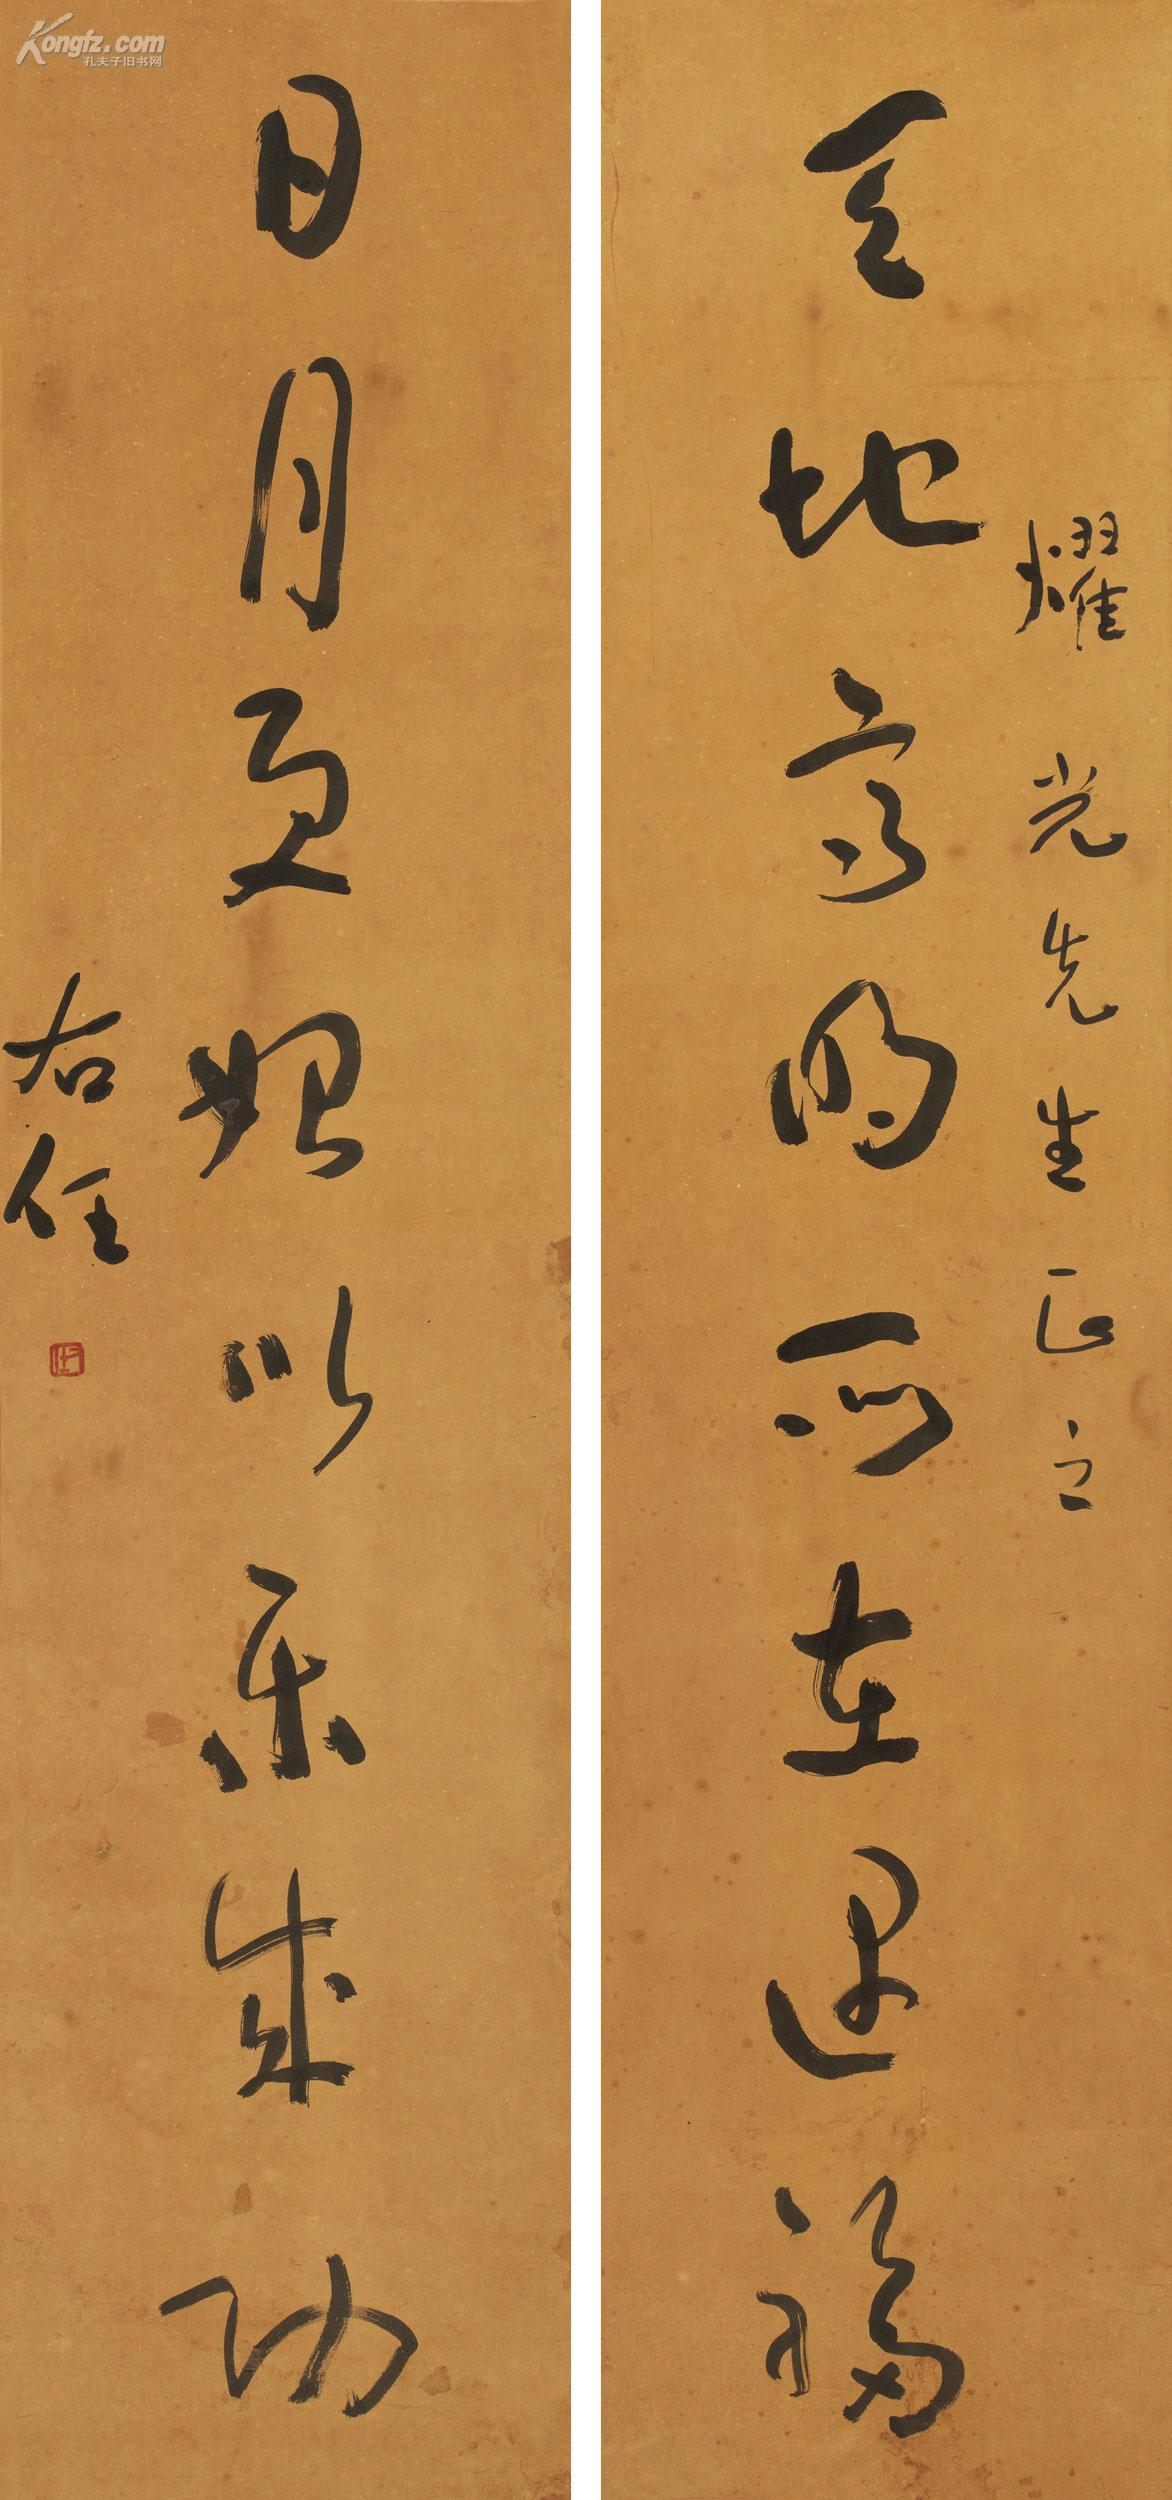 天地高明所在遇福
耀光先生正之
日月更始以乐成功
右任
Kongfz.com
孔夫子旧书网